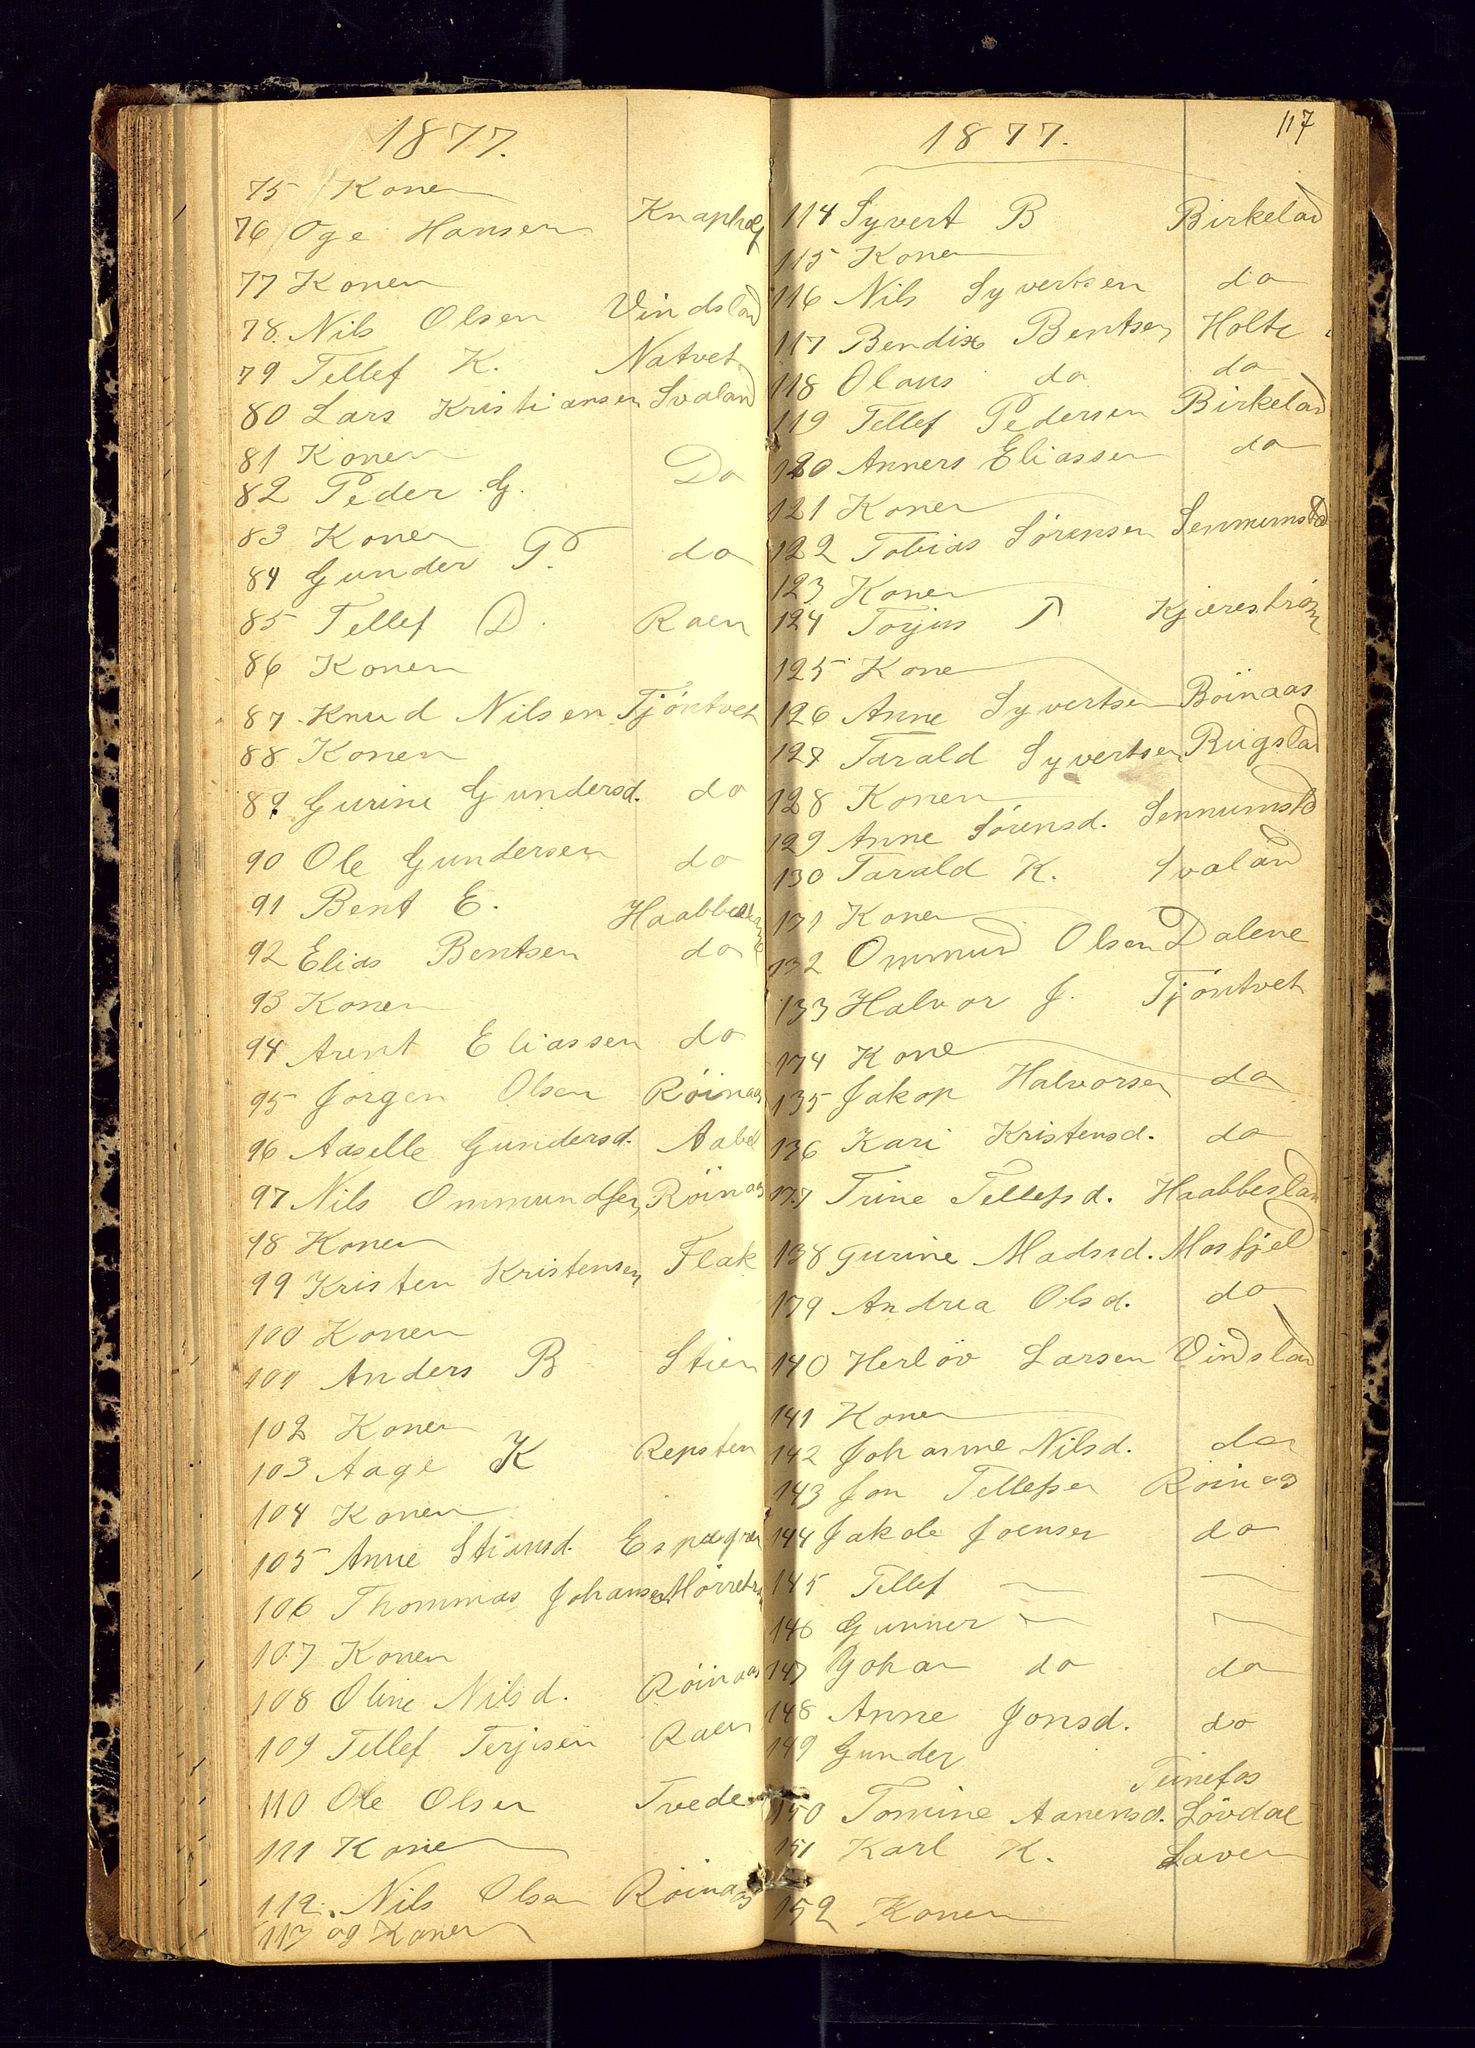 1877.
75 Konen
76 Oge Hansen
77 Konen
78. Nils Olsen Vindslad
79 Tellef K. Natvet
80 Lars Kristiansen Svaland
81 Konen
82 Peder G. Do
83 Konen
84 Gunder P. do
85 Tellef D. Raen
86 Konen
87. Knud Nilsen Tjöntvet
88 Konen
89. Gurine Gundersd. do
90 Ole Gundersen do
91 Bent E.
92 Elias Bentsen do
93 Konen
94 Arent Eliassen do
95 Jörgen Olsen Röinaas
96 Aaselle Gundersd. Aabel
97 Nils Ommundsen Röinaas
98 Konen
99 Kristen Kristensen Flak
100 Konen
101 Anders B Stien
102 Konen
103 Aage K Repsten
104 Konen
105 Anne Stiansd.
106 Thommas Johansen
107 Konen
108 Oline Nilsd. Röinaas
109 Tellef Terjisen Raen
110 Ole Olsen Tvede
111 Kone
112. Nils Olsen Röinaas
113 og Konen
1877.
117
114 Syvert B Birkelad
115 Konen
116 Nils Syvertsen do
117 Bendix Bentsen Holte
118 Olaus do do
119 Tellef Pedersen Birkelad
120 Anners Eliassen do
121 Konen
122 Tobias Sörensen Sennumstad
123 Konen
124 Torjus T Kjæreström
125 Kone
126 Anne Syvertsen Böinaas
127 Tarald Syvertsen Rugslad
128 Konen
129 Anne Sörensd. Sennumstd
130 Tarald K. Svaland
131 Konen
132 Ommund Olsen Dalene
133 Halvor J. Tjöntvet
134 Kone
135 Jakop Halvorsen do
136 Kari Kristensd. do
137 Trine Tellefsd. Haabbeslan
138 Gurine Madsd. Mosfjeld
139 Andrea Olsd. do
140 Herlöv Larsen Vindslad
141 Konen
142 Johanne Nilsd. do
143 Jon Tellefsen Röinas
144 Jakole Joensen do
145 Tellef — —
146 Gunner — —
147 Johan do do
148 Anne Jonsd. do
149 Gunder Tinefos
150 Tomine Aanensd. Lövdal
151 Karl K. Laven
152 Konen